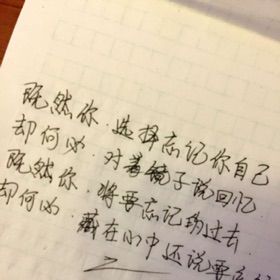 既然你.选择忘记你自己
却何必.对着镜子说回忆
既然你.将要忘记的过去
却何必.藏在心中还说要忘